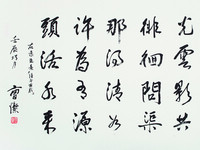 光雲影共
徘徊問渠
那得清如
許為有源
頭活水来